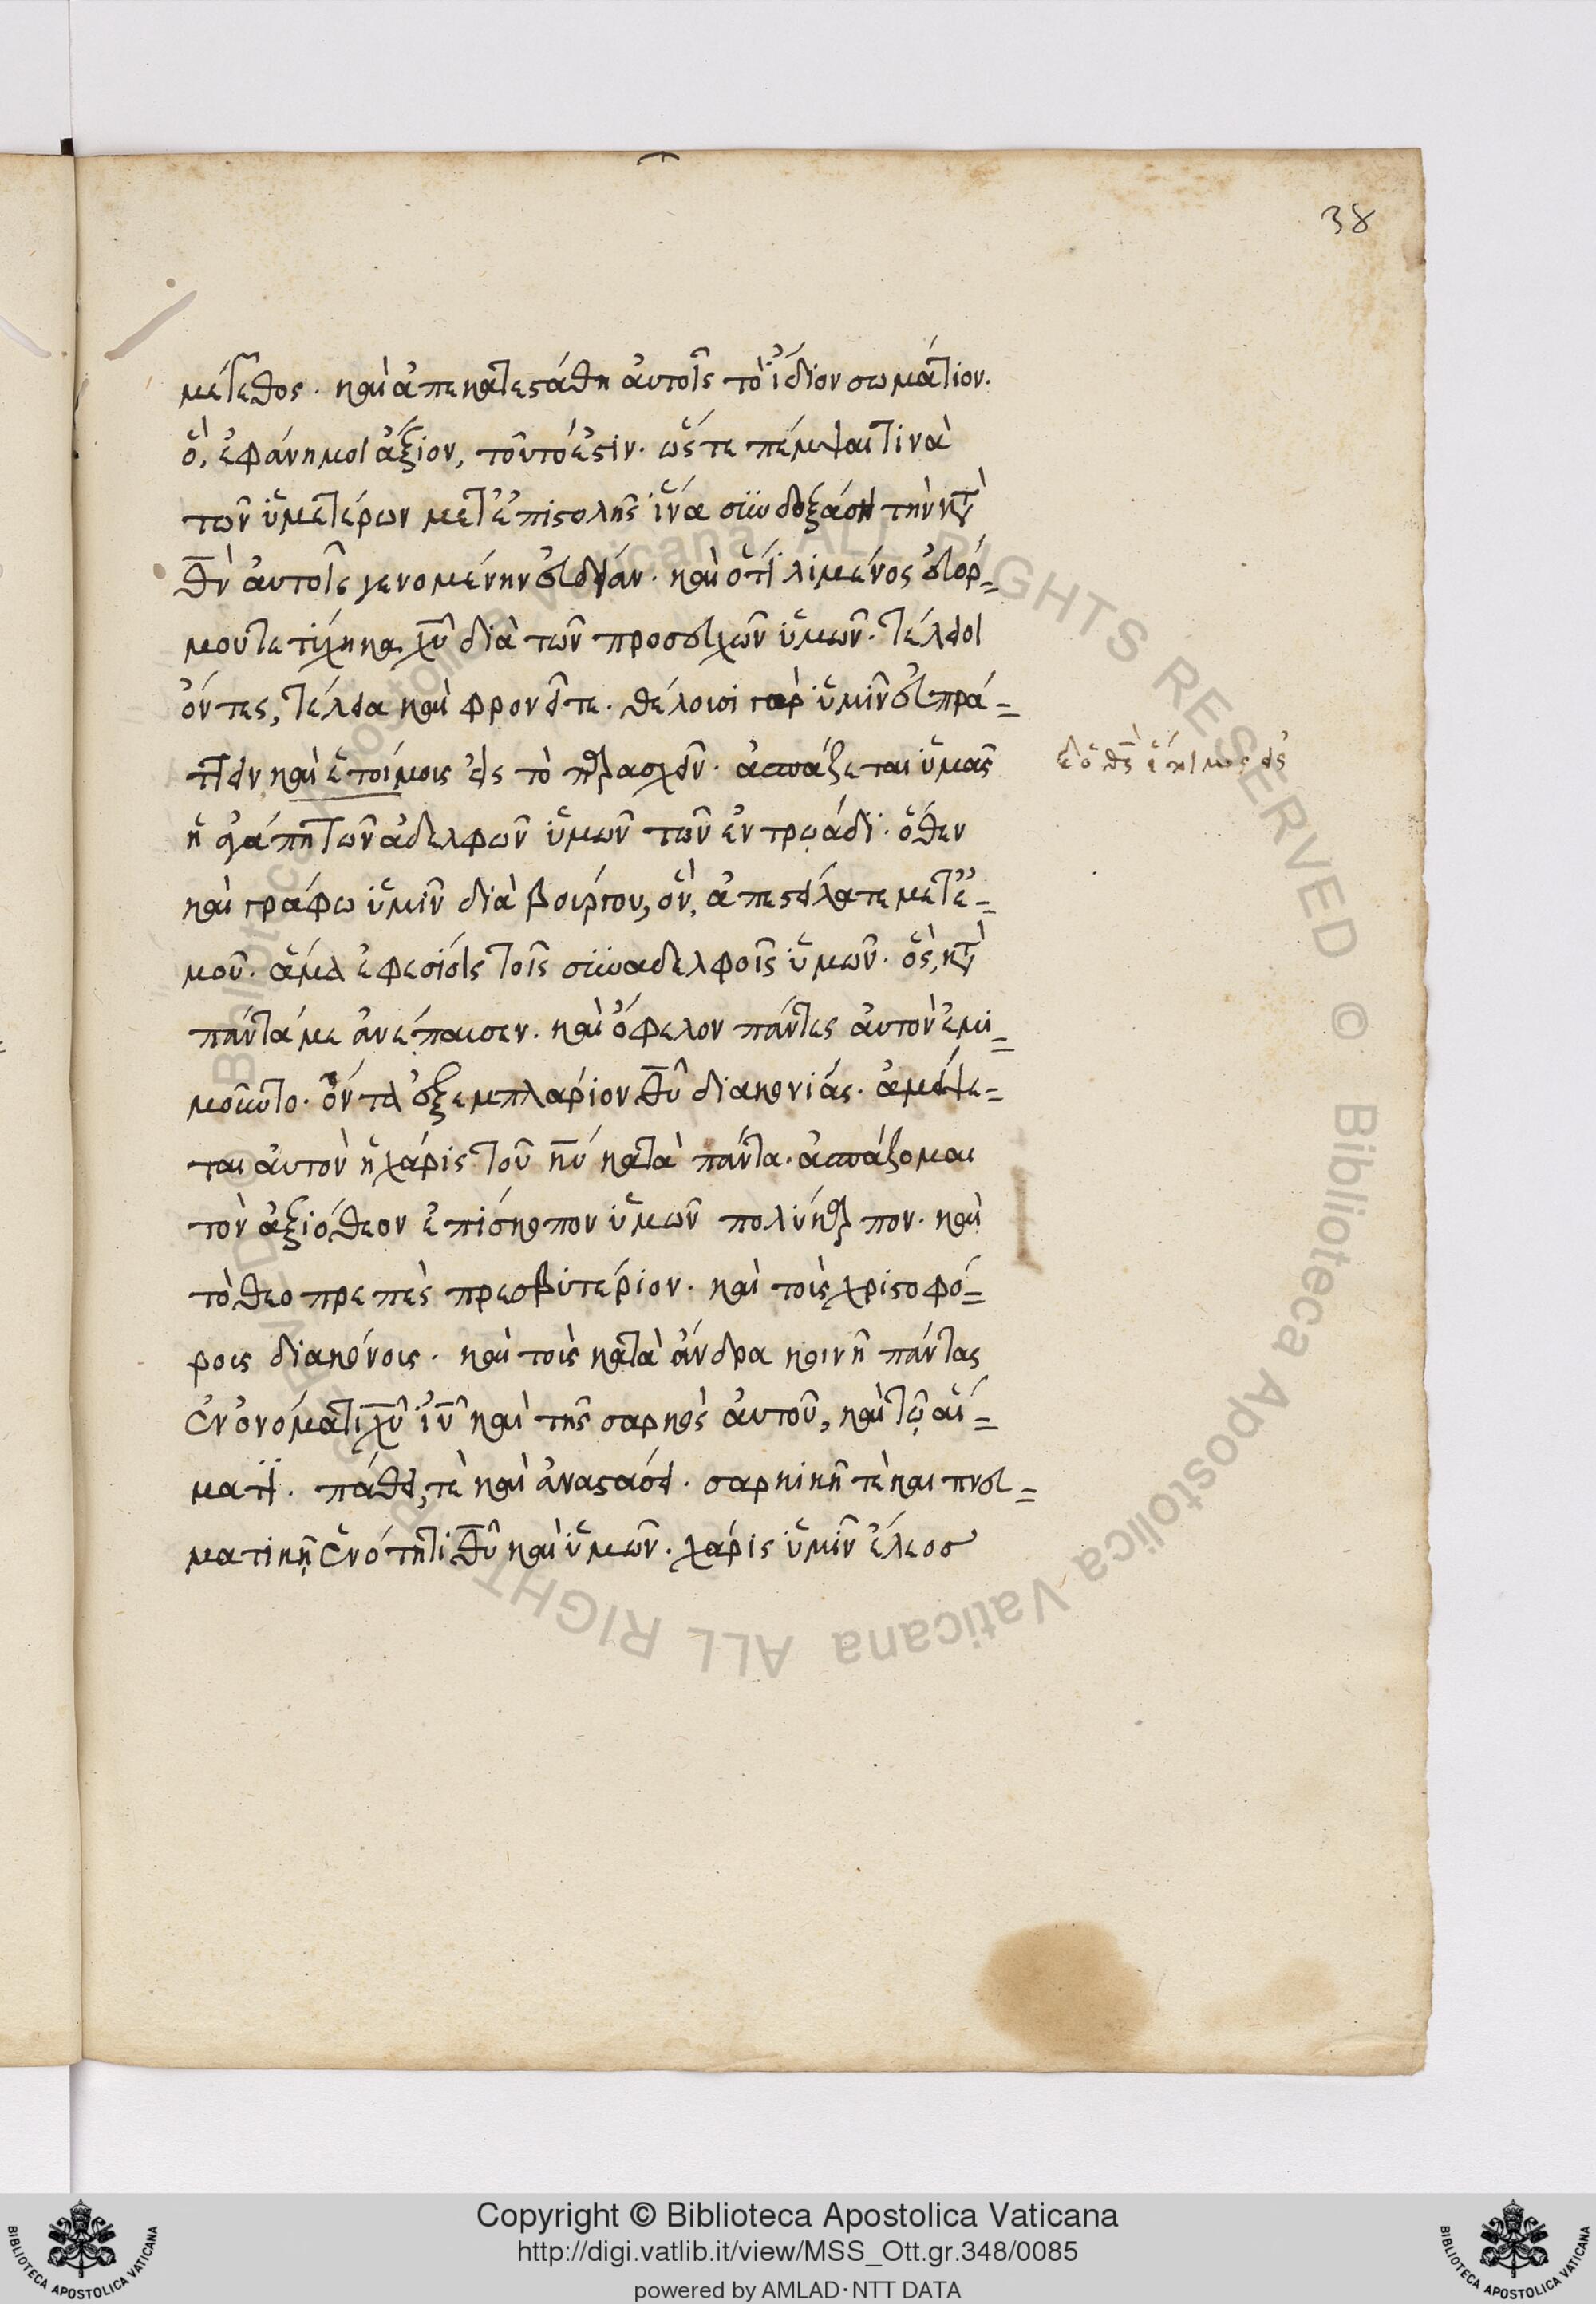 38
μέγεθος. καὶ ἀπεκατεστάθη αὐτοῖς τὸ ἴδιον σωμάτιον.
ὃ, ἐφάνη μοι ἄξιον, τοῦτό ἐστιν. ὥστε πέμψαι τινὰ
τῶν ὑμετέρων μετ' ἐπιστολῆς ἵνα συνδοξάσῃ τὴν κατὰ
θν̅ αὐτοῖς γενομένην εὐδίαν. καὶ ὅτι λιμένος εὐόρ=
μου τετύχηκα χυ̅ διὰ τῶν προσευχῶν ὑμῶν. τέλειοι
ὄντες, τέλεια καὶ φρονεῖτε. θέλουσι γὰρ ὑμῖν εὐπρά=
ττειν καὶ ἑτοίμοις εἰς τὸ παρασχεῖν. ἀσπάζεται ὑμᾶς
ἡ ἀγάπη τῶν ἀδελφῶν ὑμῶν τῶν ἐν τρωάδι. ὅθεν
καὶ γράφω ὑμῖν διὰ βούργου, ὃν, ἀπεστείλατε μετ' ἐ=
μοῦ. ἅμα ἐφεσίοις τοῖς συναδελφοῖς ὑμῶν. ὃς, κατὰ
πάντα με ἀνέπαυσεν. καὶ ὄφελον πάντες αὐτὸν ἐμι=
μοῦντο. ὄντα ἐξεμπλάριον θυ̅ διακονίας. ἀμείψε=
ται αὐτὸν ἡ χάρις τοῦ κυ̅ κατὰ πάντα. ἀσπάζομαι
τὸν ἀξιόθεον ἐπίσκοπον ὑμῶν πολύκαρπον. καὶ
τὸ θεοπρεπὲς πρεσβυτέριον. καὶ τοὺς χριστοφό=
ρους διακόνους. καὶ τοὺς κατὰ ἄνδρα κοινῇ πάντας
ἐν ὀνόματι χυ̅ ἰυ̅ καὶ τῆς σαρκὸς αὐτοῦ, καὶ τῷ αἵ=
ματι. πάθει, τὲ καὶ ἀναστάσει. σαρκικῇ τὲ καὶ πνευ=
ματικῇ ἑνότητι θυ̅ καὶ ὑμῶν. χάρις ὑμῖν ἔλεος
Copyright © Biblioteca Apostolica Vaticana
http://digi.vatlib.it/view/MSS_Ott.gr.348/0085
powered by AMLAD·NTT DATA